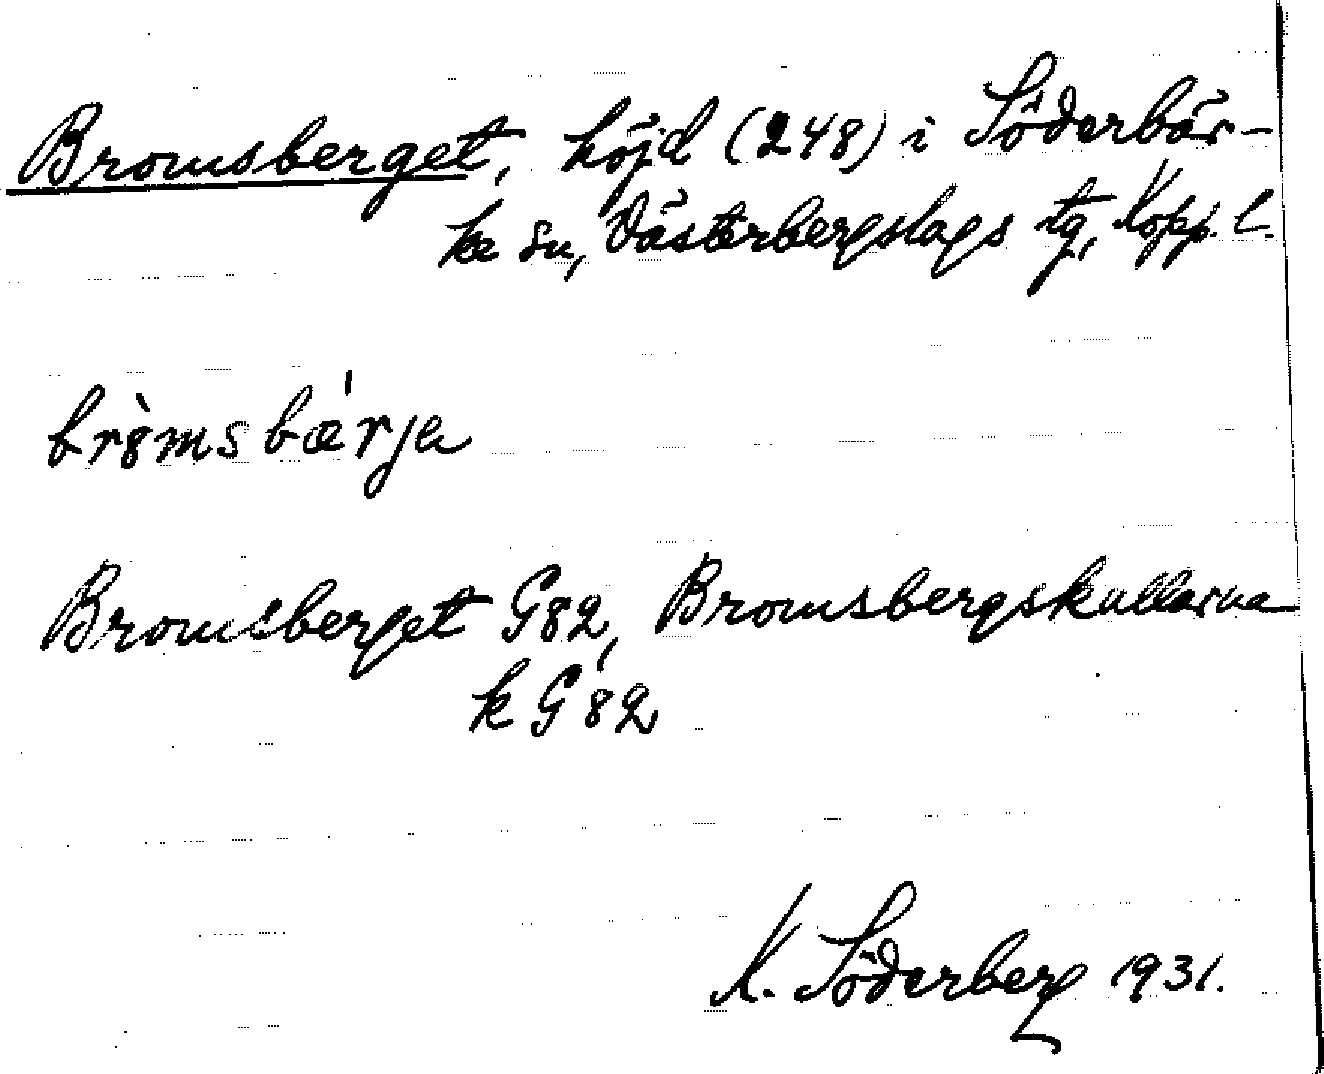 Bromsberget, höjd (248) i Söderbär-
ke sn, Västerbergslags tg, Kopp. l.
brò̤msbǽrja
Bromsberget G82, Bromsbergskullarna
k G82
K. Söderberg 1931.